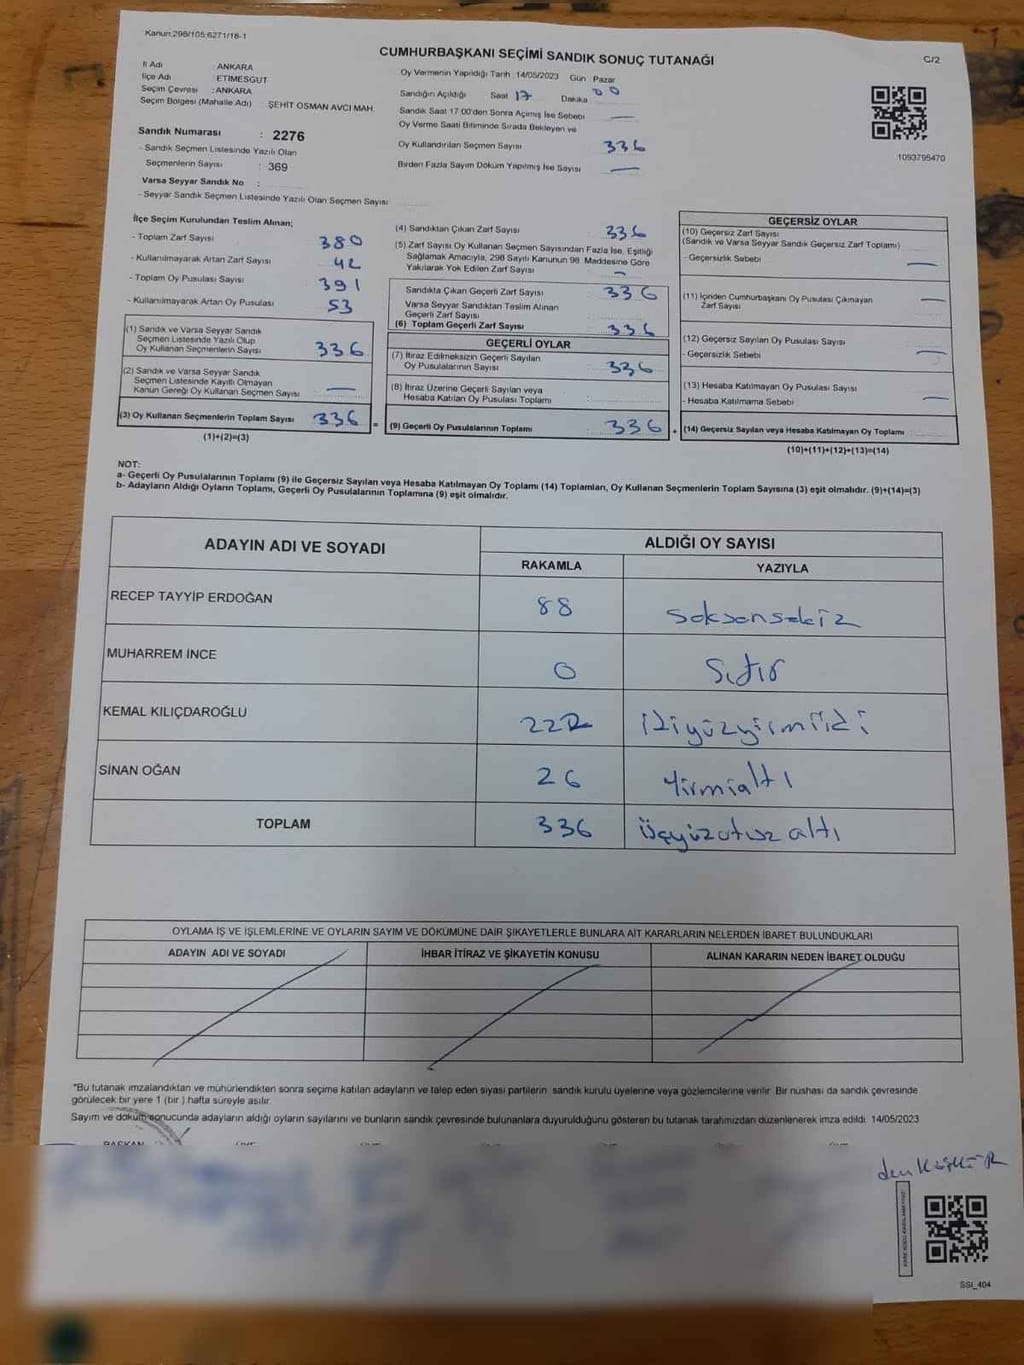 Kanun;298/105;6271/18-1
CUMHURBAŞKANI SEÇİMİ SANDIK SONUÇ TUTANAĞI
C/2
İl Adı : ANKARA
İlçe Adı : ETİMESGUT
Seçim Çevresi : ANKARA
Seçim Bölgesi (Mahalle Adı) : ŞEHİT OSMAN AVCI MAH.
Sandık Numarası : 2276
- Sandık Seçmen Listesinde Yazılı Olan
Seçmenlerin Sayısı : 369
Varsa Seyyar Sandık No :
- Seyyar Sandık Seçmen Listesinde Yazılı Olan Seçmen Sayısı
Oy Vermenin Yapıldığı Tarih 14/05/2023 Gün Pazar
Sandığın Açıldığı Saat 17 Dakika 00
Sandık Saat 17.00'den Sonra Açılmış İse Sebebi —
Oy Verme Saati Bitiminde Sırada Bekleyen ve
Oy Kullandırılan Seçmen Sayısı 336
Birden Fazla Sayım Döküm Yapılmış İse Sayısı —
1093795470
İlçe Seçim Kurulundan Teslim Alınan;
- Toplam Zarf Sayısı 380
- Kullanılmayarak Artan Zarf Sayısı 42
- Toplam Oy Pusulası Sayısı 391
- Kullanılmayarak Artan Oy Pusulası 53
(1) Sandık ve Varsa Seyyar Sandık
Seçmen Listesinde Yazılı Olup
Oy Kullanan Seçmenlerin Sayısı 336
(2) Sandık ve Varsa Seyyar Sandık
Seçmen Listesinde Kayıtlı Olmayan
Kanun Gereği Oy Kullanan Seçmen Sayısı —
(3) Oy Kullanan Seçmenlerin Toplam Sayısı 336 =
(1)+(2)=(3)
(4) Sandıktan Çıkan Zarf Sayısı 336
(5) Zarf Sayısı Oy Kullanan Seçmen Sayısından Fazla İse, Eşitliği
Sağlamak Amacıyla, 298 Sayılı Kanunun 98. Maddesine Göre
Yakılarak Yok Edilen Zarf Sayısı —
Sandıkta Çıkan Geçerli Zarf Sayısı 336
Varsa Seyyar Sandıktan Teslim Alınan
Geçerli Zarf Sayısı
(6) Toplam Geçerli Zarf Sayısı 336
GEÇERLİ OYLAR
(7) İtiraz Edilmeksizin Geçerli Sayılan
Oy Pusulalarının Sayısı 336
(8) İtiraz Üzerine Geçerli Sayılan veya
Hesaba Katılan Oy Pusulası Toplamı
(9) Geçerli Oy Pusulalarının Toplamı 336 +
GEÇERSİZ OYLAR
(10) Geçersiz Zarf Sayısı
(Sandık ve Varsa Seyyar Sandık Geçersiz Zarf Toplamı)
- Geçersizlik Sebebi —
(11) İçinden Cumhurbaşkanı Oy Pusulası Çıkmayan —
Zarf Sayısı
(12) Geçersiz Sayılan Oy Pusulası Sayısı
- Geçersizlik Sebebi —
(13) Hesaba Katılmayan Oy Pusulası Sayısı
- Hesaba Katılmama Sebebi —
(14) Geçersiz Sayılan veya Hesaba Katılmayan Oy Toplamı
(10)+(11)+(12)+(13)=(14)
NOT:
a- Geçerli Oy Pusulalarının Toplamı (9) ile Geçersiz Sayılan veya Hesaba Katılmayan Oy Toplamı (14) Toplamları, Oy Kullanan Seçmenlerin Toplam Sayısına (3) eşit olmalıdır. (9)+(14)=(3)
b- Adayların Aldığı Oyların Toplamı, Geçerli Oy Pusulalarının Toplamına (9) eşit olmalıdır.
ADAYIN ADI VE SOYADI ALDIĞI OY SAYISI
RAKAMLA YAZIYLA
RECEP TAYYİP ERDOĞAN 88 seksensekiz
MUHARREM İNCE 0 Sıfır
KEMAL KILIÇDAROĞLU 222 ikiyüzyirmiiki
SİNAN OĞAN 26 Yirmialtı
TOPLAM 336 üçyüzotuz altı
OYLAMA İŞ VE İŞLEMLERİNE VE OYLARIN SAYIM VE DÖKÜMÜNE DAİR ŞİKAYETLERLE BUNLARA AİT KARARLARIN NELERDEN İBARET BULUNDUKLARI
ADAYIN ADI VE SOYADI İHBAR İTİRAZ VE ŞİKAYETİN KONUSU ALINAN KARARIN NEDEN İBARET OLDUĞU
*Bu tutanak imzalandıktan ve mühürlendikten sonra seçime katılan adayların ve talep eden siyasi partilerin sandık kurulu üyelerine veya gözlemcilerine verilir. Bir nüshası da sandık çevresinde
görülecek bir yere 1 (bir ) hafta süreyle asılır.
Sayım ve döküm sonucunda adayların aldığı oyların sayılarını ve bunların sandık çevresinde bulunanlara duyurulduğunu gösteren bu tutanak tarafımızdan düzenlenerek imza edildi. 14/05/2023
BAŞKAN
SSI_404